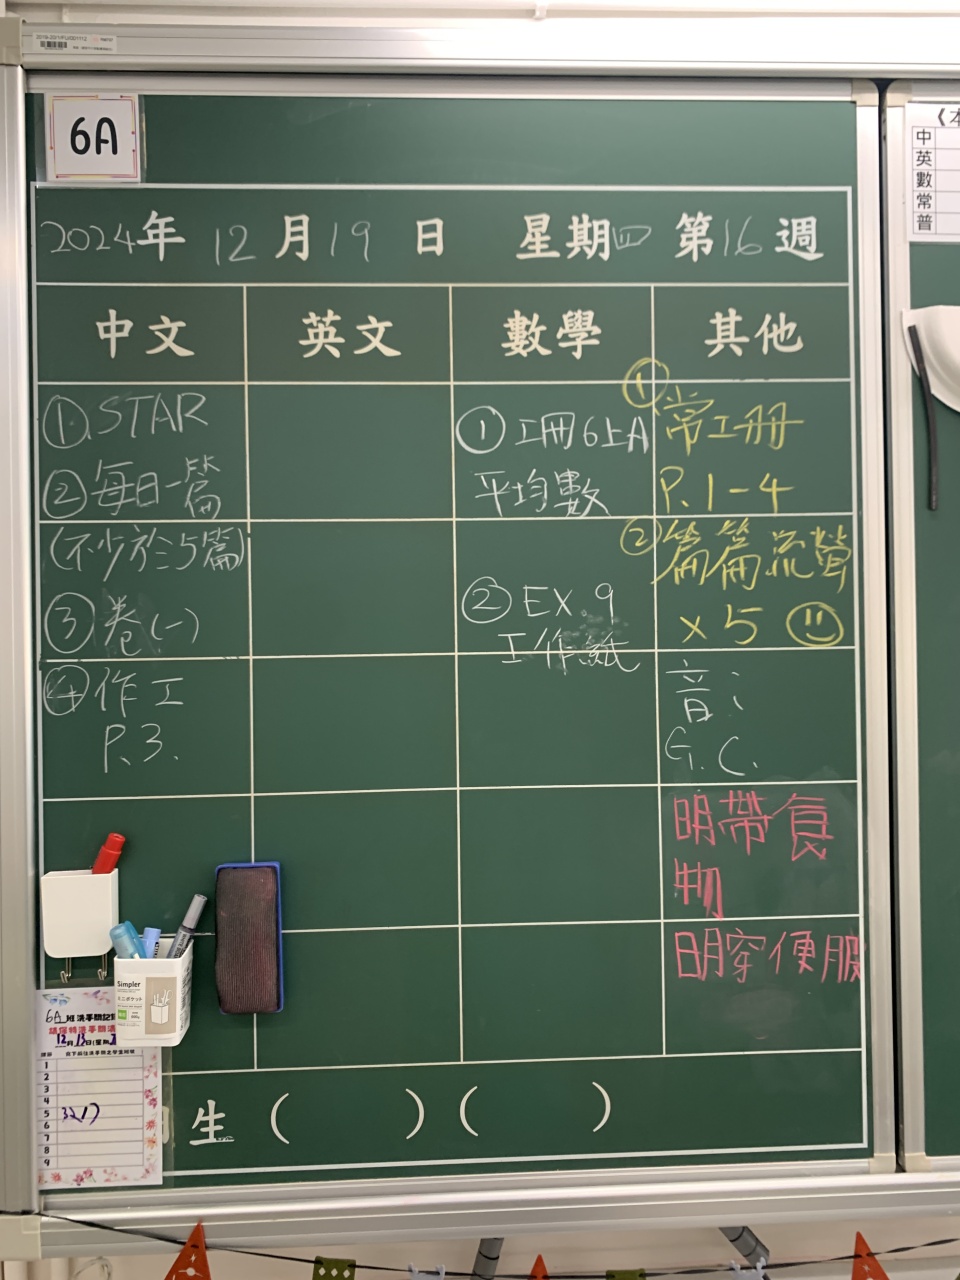 6A
2024年 12月19日 星期四 第16週
中文 英文 數學 其他
① STAR
② 每日一篇
(不少於5篇)
③ 卷(一)
④ 作工
P.3.
① 工冊6上A
平均數
② EX.9
工作紙
① 常工冊
P.1-4
② 篇篇流螢
×5
音:
G.C.
明帶食
物
明穿便服
生 ( ) ( )
Simpler
6A 班洗手間記
12月13日(星期
1
2
3
4
5
6
7
8
9
《本
中
英
數
常
普